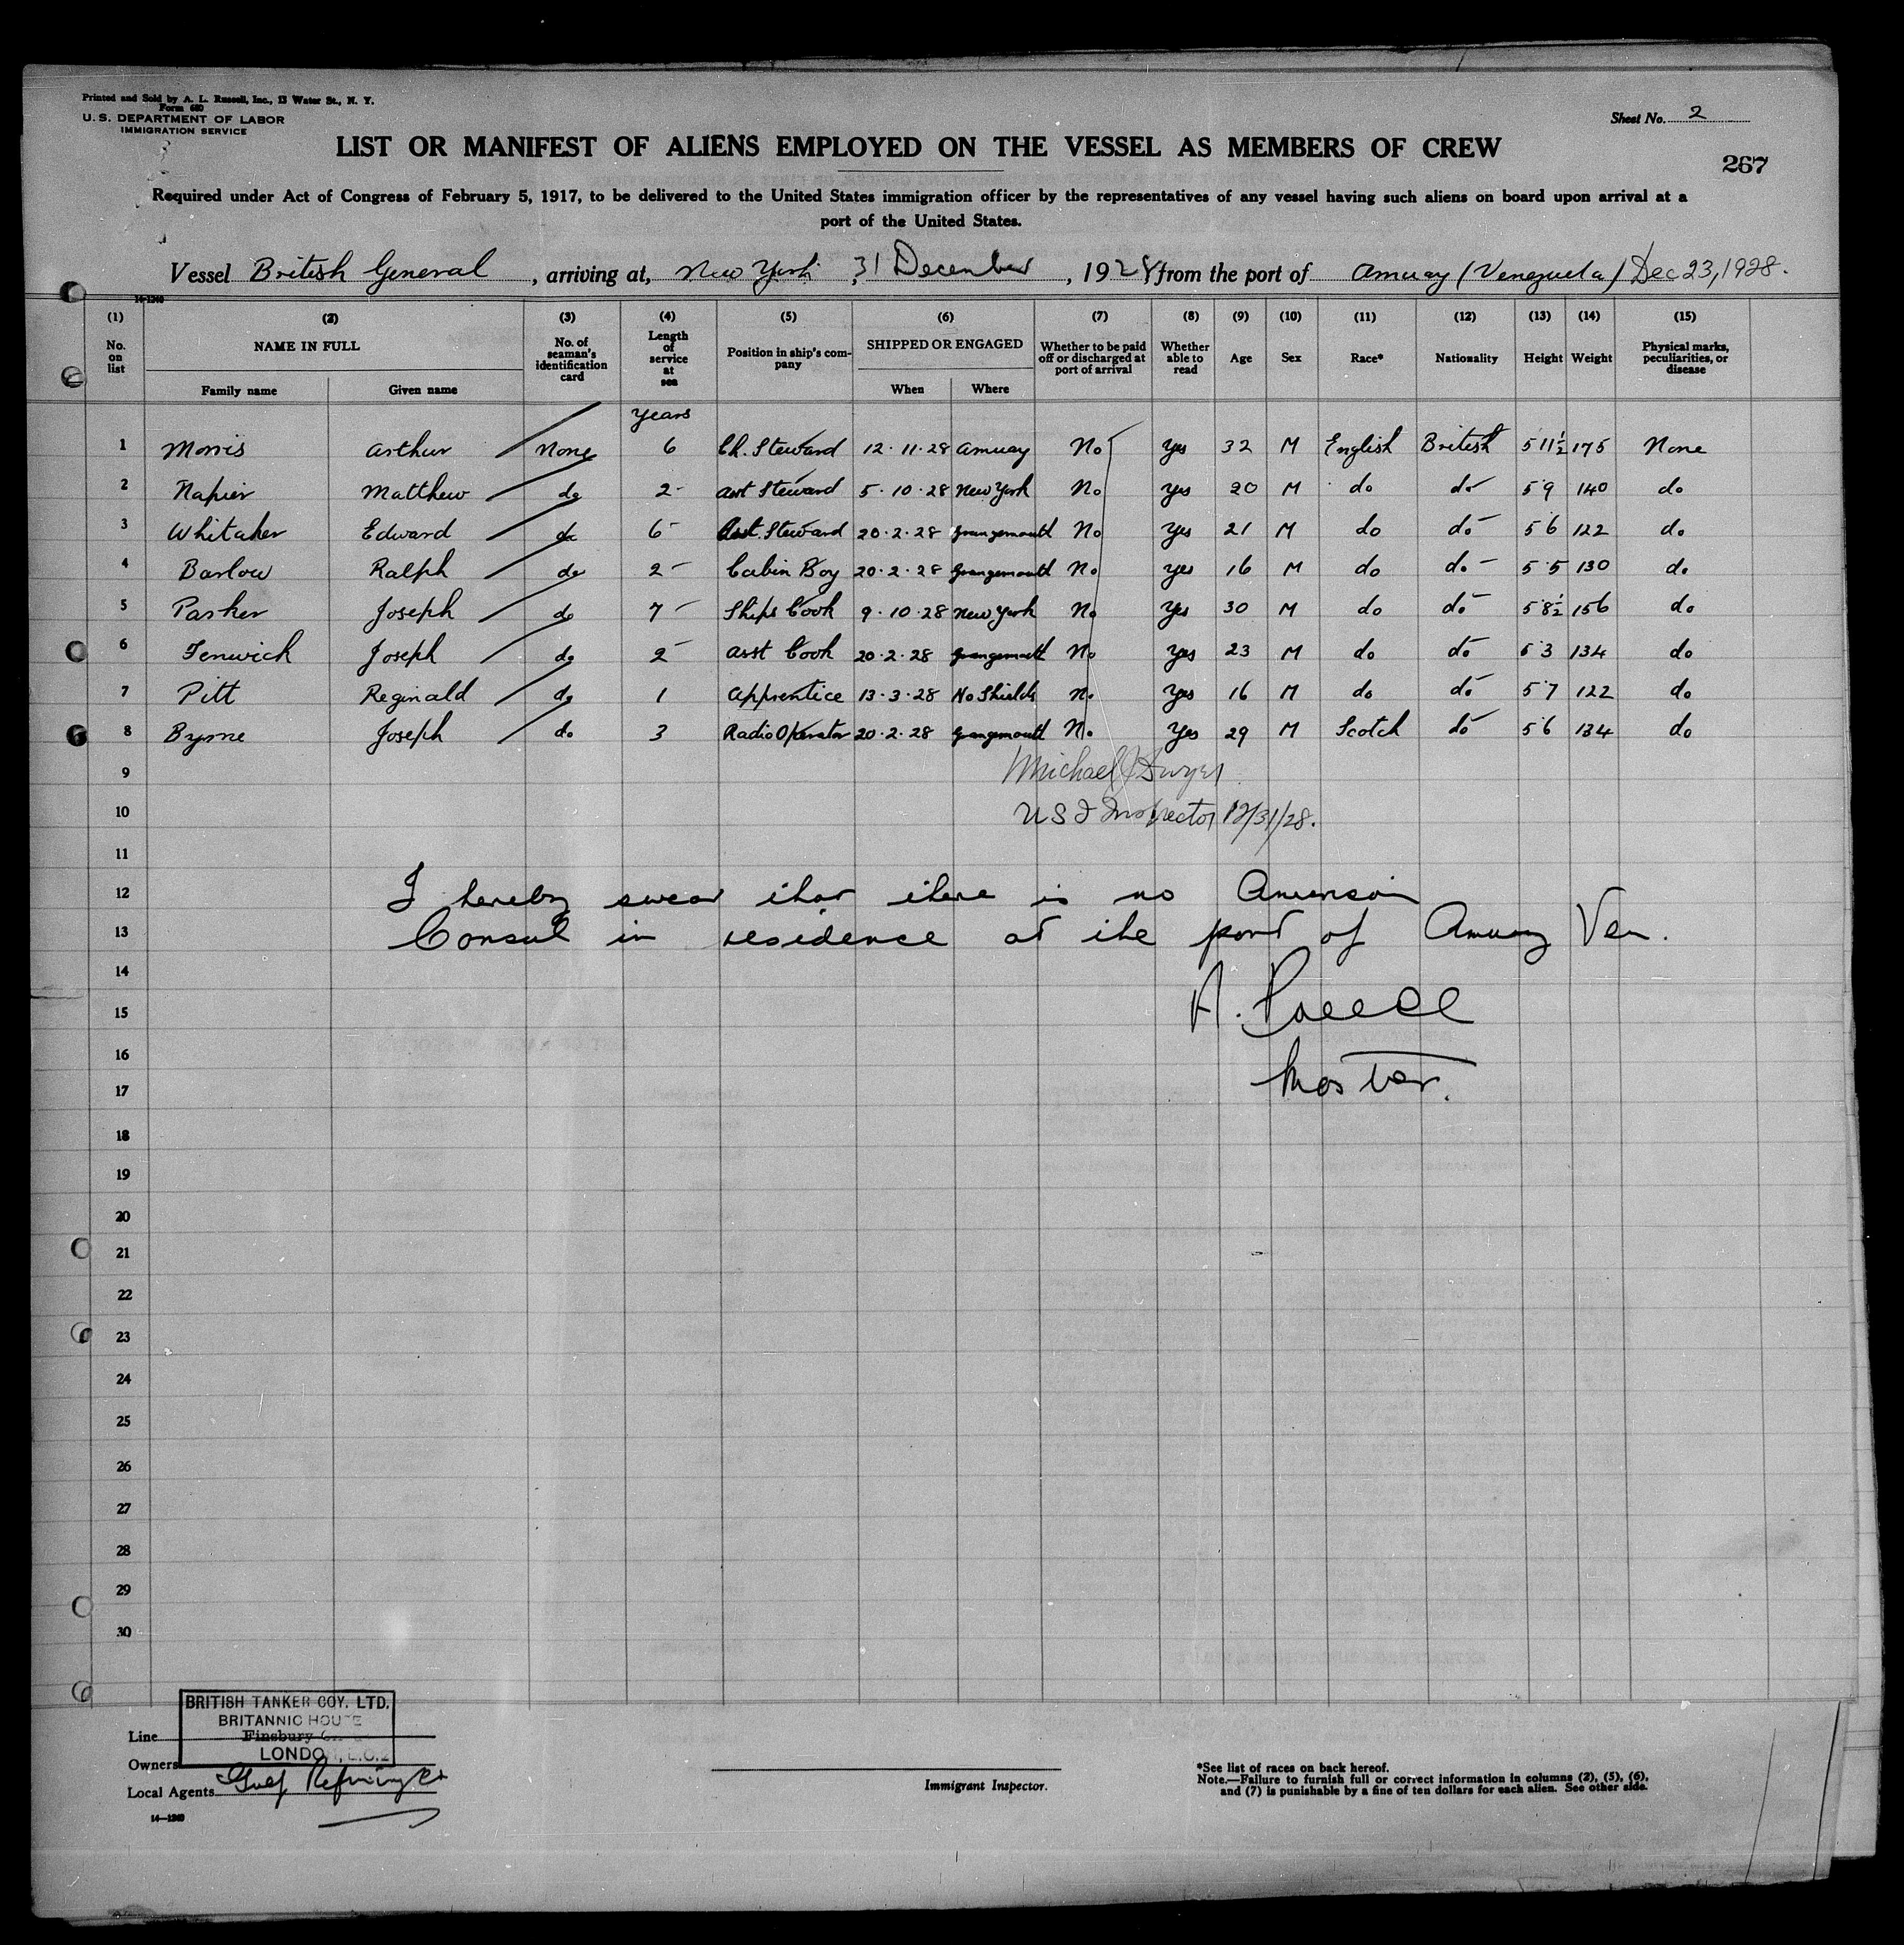 Printed and Sold by A. L. Russell, Inc., 13 Water St., N. Y.
Form 680
U. S. DEPARTMENT OF LABOR
IMMIGRATION SERVICE
Sheet No. 2
LIST OR MANIFEST OF ALIENS EMPLOYED ON THE VESSEL AS MEMBERS OF CREW
267
Required under Act of Congress of February 5, 1917, to be delivered to the United States immigration officer by the representatives of any vessel having such aliens on board upon arrival at a
port of the United States.
Vessel British General, arriving at, New York, 31 December, 1928, from the port of Amuay (Venezuela) Dec 23, 1928.
14-1240
(1) (2) (3) (4) (5) (6) (7) (8) (9) (10) (11) (12) (13) (14) (15)
No. on list NAME IN FULL Family name Given name No. of seaman's identification card Length of service at sea Position in ship's company SHIPPED OR ENGAGED When Where Whether to be paid off or discharged at port of arrival Whether able to read Age Sex Race* Nationality Height Weight Physical marks, peculiarities, or disease
years
1 Morris Arthur None 6 Ch. Steward 12.11.28 Amuay No Yes 32 M English British 5 11½ 175 None
2 Napier Matthew do 2 Asst Steward 5.10.28 New York No Yes 20 M do do 5 9 140 do
3 Whitaker Edward do 6 Asst. Steward 20.2.28 Grangemouth No Yes 21 M do do 5 6 122 do
4 Barlow Ralph do 2 Cabin Boy 20.2.28 Grangemouth No Yes 16 M do do 5 5 130 do
5 Parker Joseph do 7 Ships Cook 9.10.28 New York No Yes 30 M do do 5 8½ 156 do
6 Fenwick Joseph do 2 Asst Cook 20.2.28 Grangemouth No Yes 23 M do do 5 3 134 do
7 Pitt Reginald do 1 Apprentice 13.3.28 No Shields No Yes 16 M do do 5 7 122 do
8 Byrne Joseph do 3 Radio Operator 20.2.28 Grangemouth No Yes 29 M Scotch do 5 6 134 do
9 Michael J Dwyer
10 U S I Inspector 12/31/28.
11
12 I hereby swear that there is no American
13 Consul in residence at the port of Amuay Ven.
14
15 A.
16
17 Master.
18
19
20
21
22
23
24
25
26
27
28
29
30
BRITISH TANKER COY. LTD.
BRITANNIC HOUSE
Line Finsbury
LONDON, E.C.2
Owners
Local Agents Gulf Refining Co
14-1240
Immigrant Inspector.
*See list of races on back hereof.
Note.—Failure to furnish full or correct information in columns (2), (5), (6),
and (7) is punishable by a fine of ten dollars for each alien. See other side.